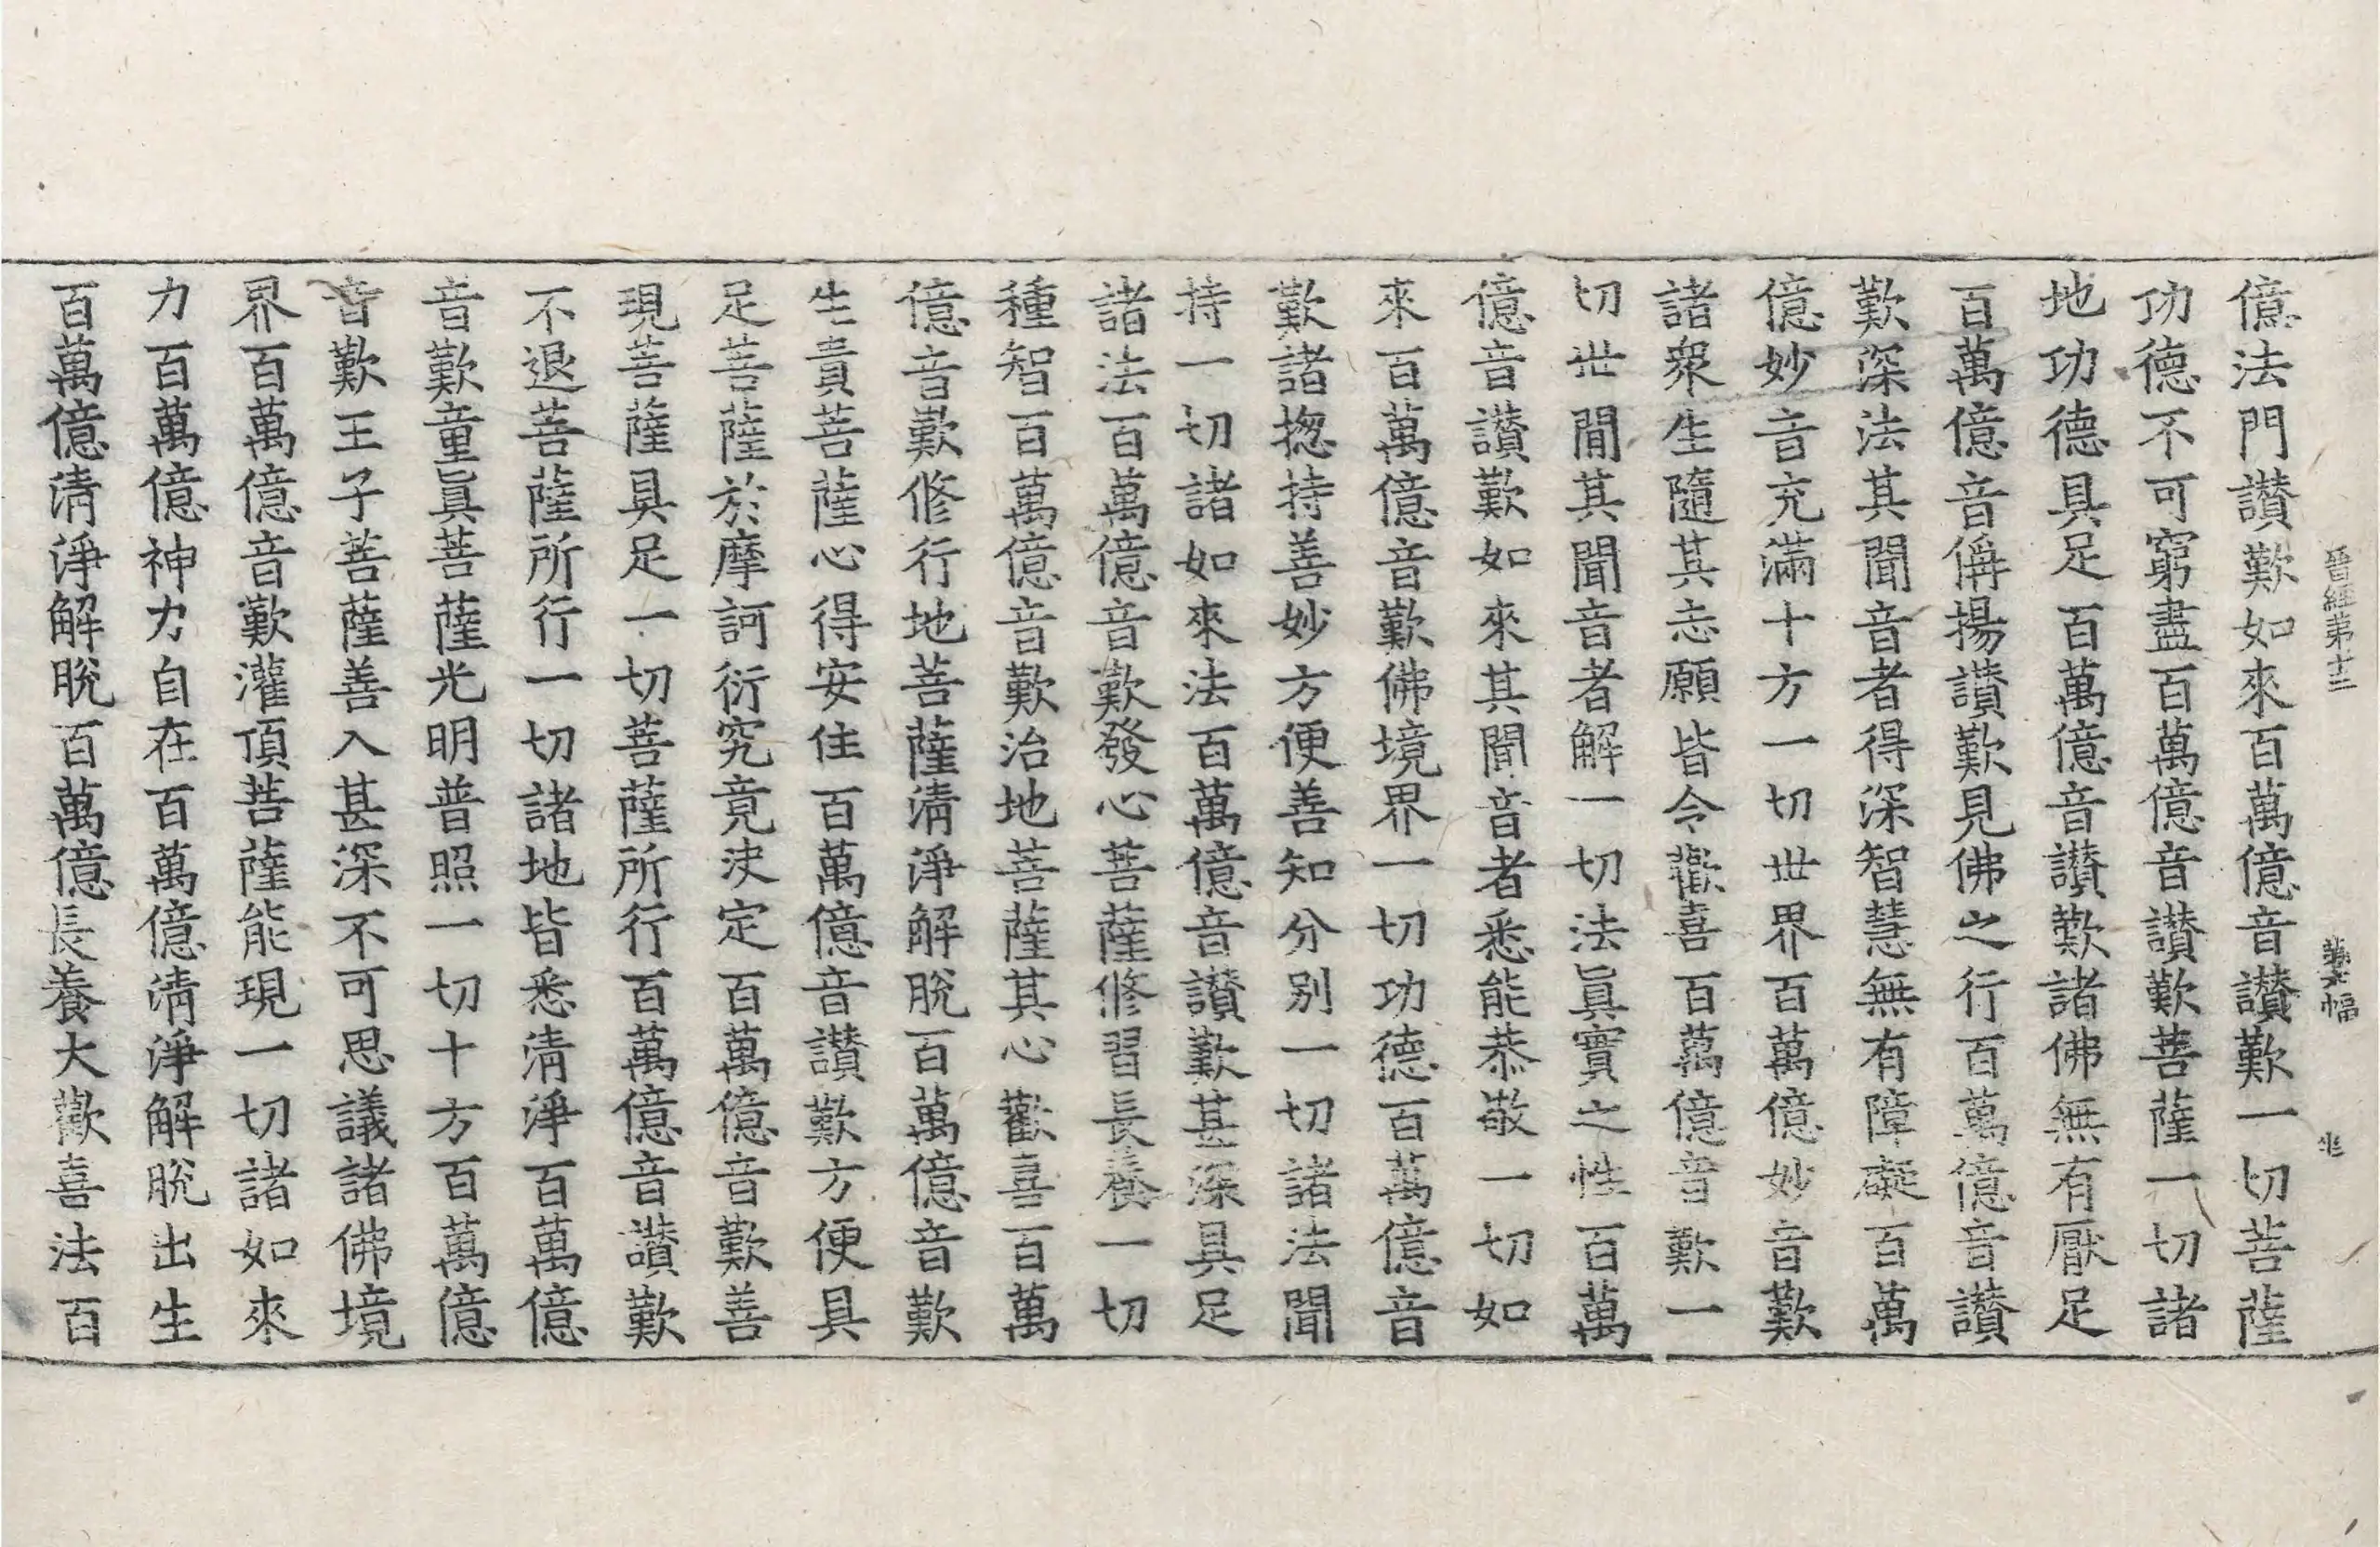 晉經第十三 第六幅 坐
億法門讃歎如來百萬億音讃歎一切菩薩
功德不可窮盡百萬億音讃歎菩薩一切諸
地功德具足百萬億音讃歎諸佛無有厭足
百萬億音偁揚讃歎見佛之行百萬億音讃
歎深法其聞音者得深智慧無有障礙百萬
億妙音充滿十方一切世界百萬億妙音歎
諸衆生隨其志願皆令歡喜百萬億音歎一
切世閒其聞音者解一切法眞實之性百萬
億音讃歎如來其聞音者悉能恭敬一切如
來百萬億音歎佛境界一切功德百萬億音
歎諸揔持善妙方便善知分别一切諸法聞
持一切諸如來法百萬億音讃歎甚深具足
諸法百萬億音歎發心菩薩修習長養一切
種智百萬億音歎治地菩薩其心歡喜百萬
億音歎修行地菩薩淸淨解脫百萬億音歎
生貴菩薩心得安住百萬億音讃歎方便具
足菩薩於摩訶衍究竟決定百萬億音歎善
現菩薩具足一切菩薩所行百萬億音讃歎
不退菩薩所行一切諸地皆悉淸淨百萬億
音歎童眞菩薩光明普照一切十方百萬億
音歎王子菩薩善入甚深不可思議諸佛境
界百萬億音歎灌頂菩薩能現一切諸如來
力百萬億神力自在百萬億淸淨解脫出生
百萬億淸淨解脫百萬億長養大歡喜法百